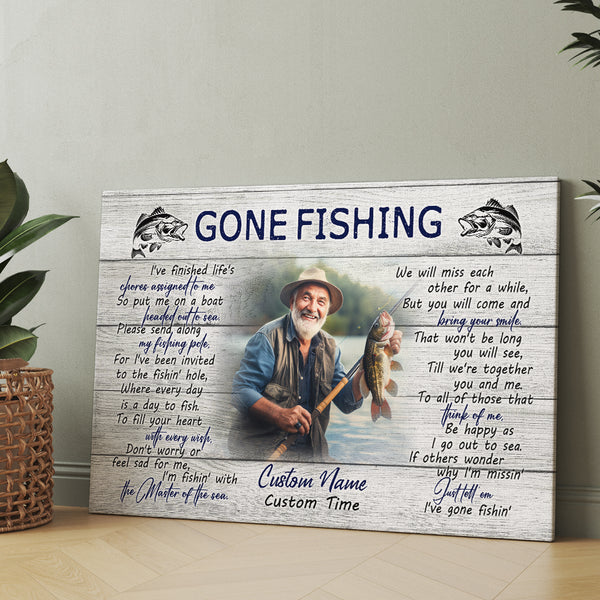 GONE FISHING
I've finished life's
chores assigned to me
So put me on a boat
headed out to sea.
Please send along
my fishing pole,
For I've been invited
to the fishin' hole,
Where every day
is a day to fish.
To fill your heart
with every wish.
Don't worry or
feel sad for me,
I'm fishin' with
the Master of the sea.
We will miss each
other for a while,
But you will come and
bring your smile.
That won't be long
you will see,
Till we're together
you and me.
To all of those that
think of me,
Be happy as
I go out to sea.
If others wonder
why I'm missin'
Just tell em
I've gone fishin'
Custom Name
Custom Time